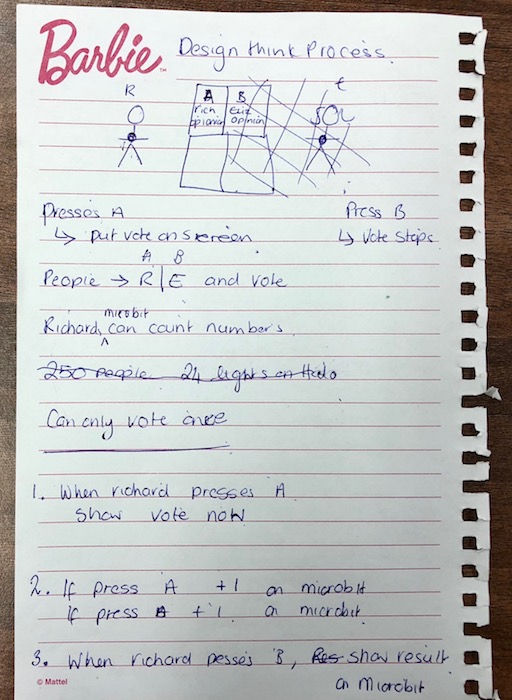 Barbie
Design think Process.
R
E
A B
rich Eliz
opinion opinion
Presses A Press B
↳ put vote on screen ↳ Vote stops
A B
People → R | E and vote
microbit
Richards ^ can count numbers
250 people 24 lights on Halo
Can only vote once
1. When richard presses A
Show vote now
2. If press A +1 on microbit
If press B +1 on microbit
3. When richard pesses B, Res show result
on Microbit
© Mattel